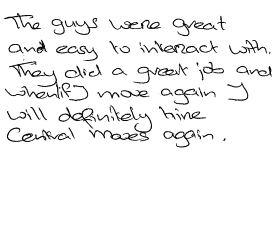 The guys were great
and easy to interact with.
They did a great job and
when(if) I move again I
will definitely hire
Central Moves again.